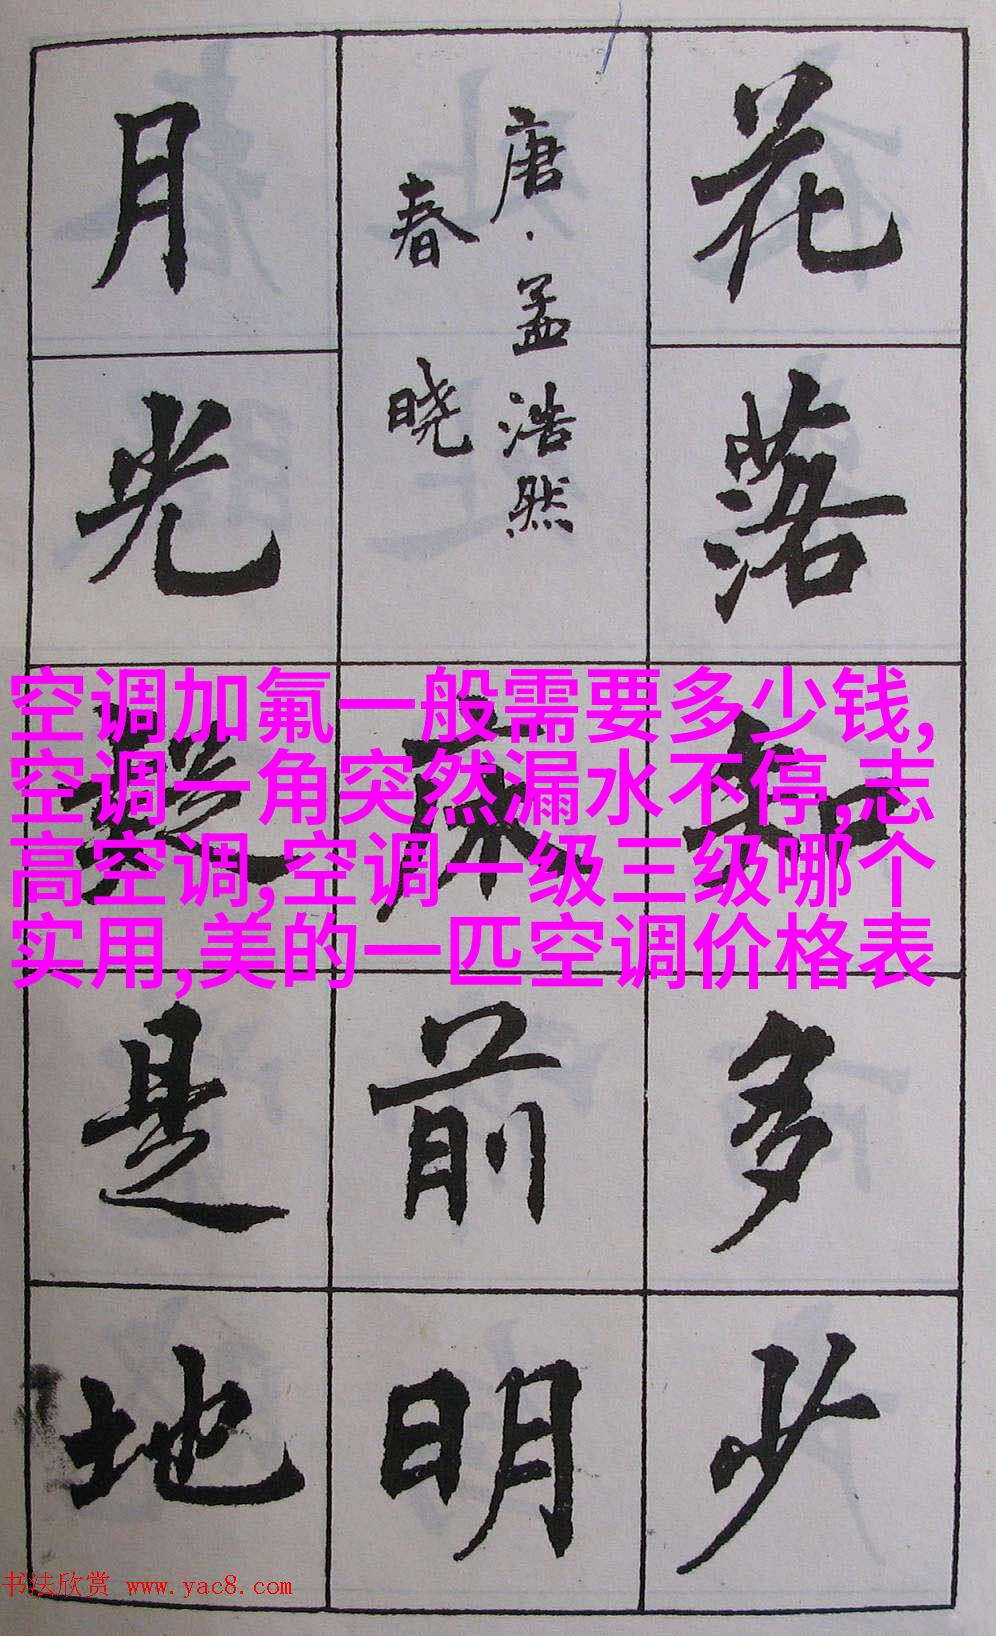 花落知多少
唐·孟浩然
春晓
床前明
月光疑是地
空调加氟一般需要多少钱,
空调一角突然漏水不停,志
高空调,空调一级三级哪个
实用,美的一匹空调价格表
书法欣赏 www.yac8.com